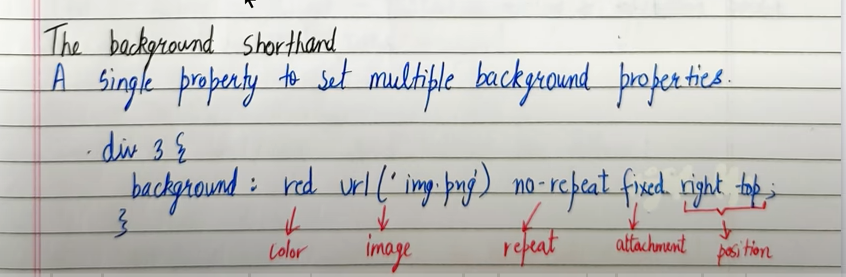 The background shorthand
A single property to set multiple background properties.
. div 3 {
background : red url('img.png') no-repeat fixed right top;
}
color image repeat attachment position